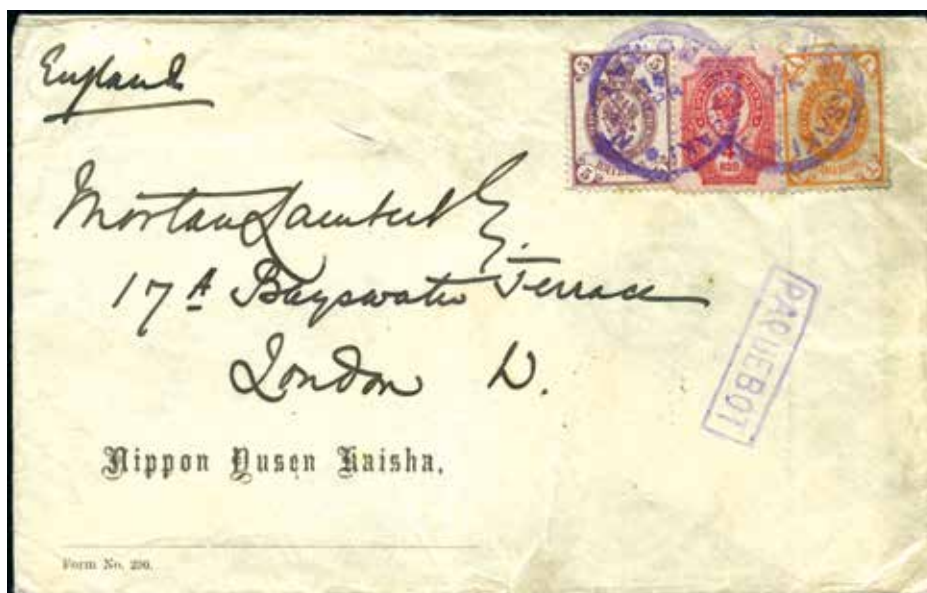 England
Morton Lambert
17A Bayswater Terrace
London W.
PAQUEBOT
Nippon Yusen Kaisha.
Form No. 290.
5 5
5 5
4